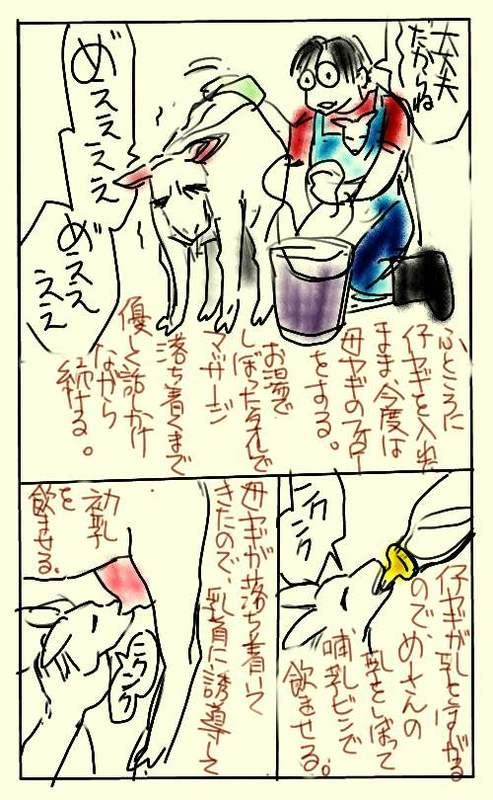 大丈夫
だからね
めぇ
ええええ
めええ
ええええ
ふところに
仔ヤギを入れた
まま、今度は
母ヤギのフォロー
をする。
お湯で
しぼったタオルで
マッサージ
落ち着くまで
優しく話しかけ
ながら
続ける。
仔ヤギが乳をほしがる
ので、めさんの
乳をしぼって
哺乳ビンで
飲ませる。
母ヤギが落ち着いて
きたので、乳首に誘導して
初乳
を
飲ませる。